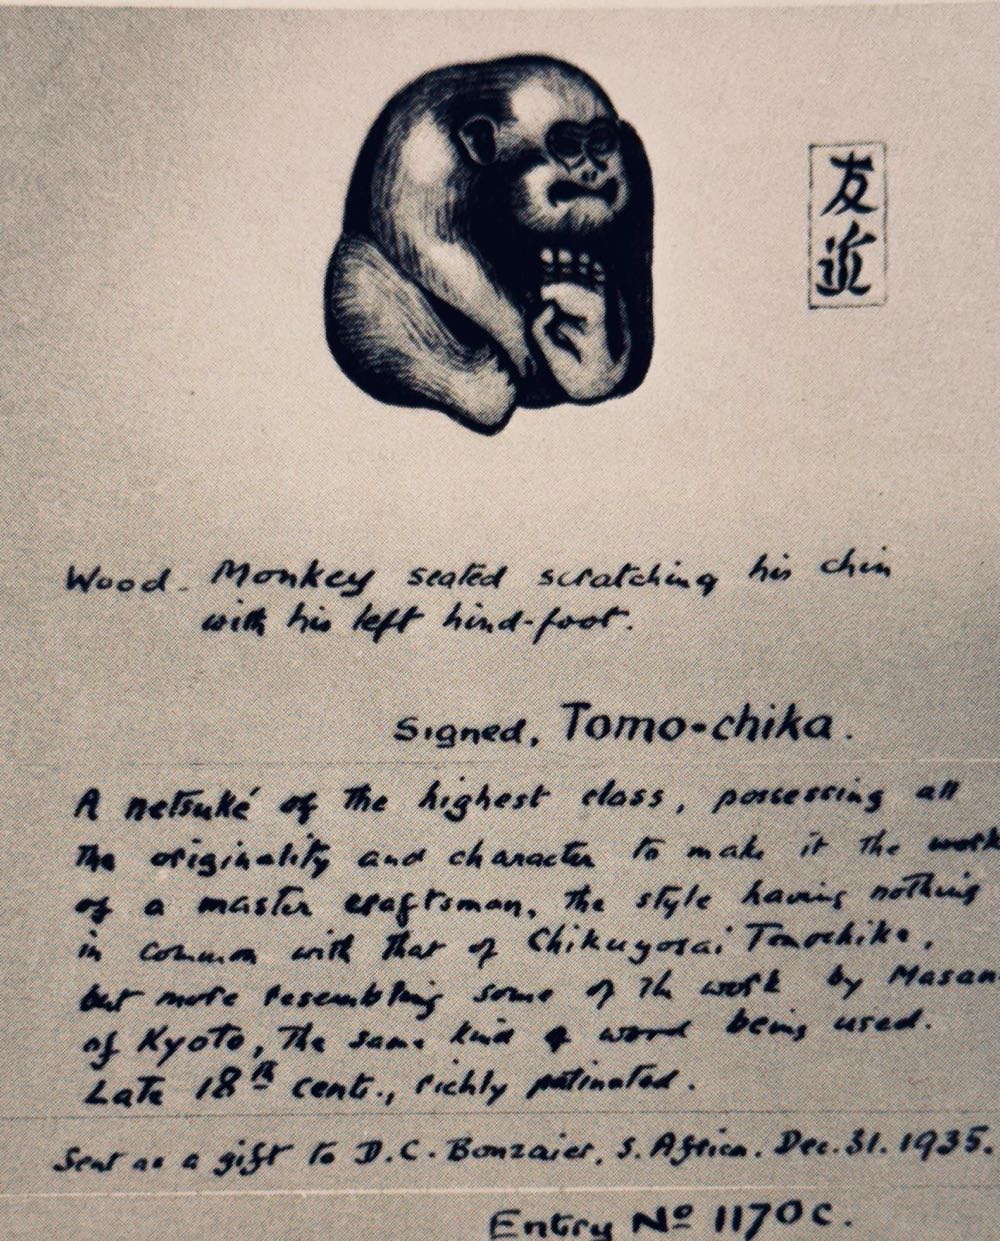 友
近
Wood. Monkey seated scratching his chin
with his left hind-foot.
Signed, Tomo-chika.
A netsuké of the highest class, possessing all
the originality and character to make it the work
of a master craftsman, the style having nothing
in common with that of Chikuyosai Tomochika,
but more resembling some of the work by Masan
of Kyoto, the same kind of wood being used.
Late 18th cent., richly patinated.
Sent as a gift to D.C. Bonzaier, S. Africa. Dec. 31. 1935.
Entry Nº 1170c.